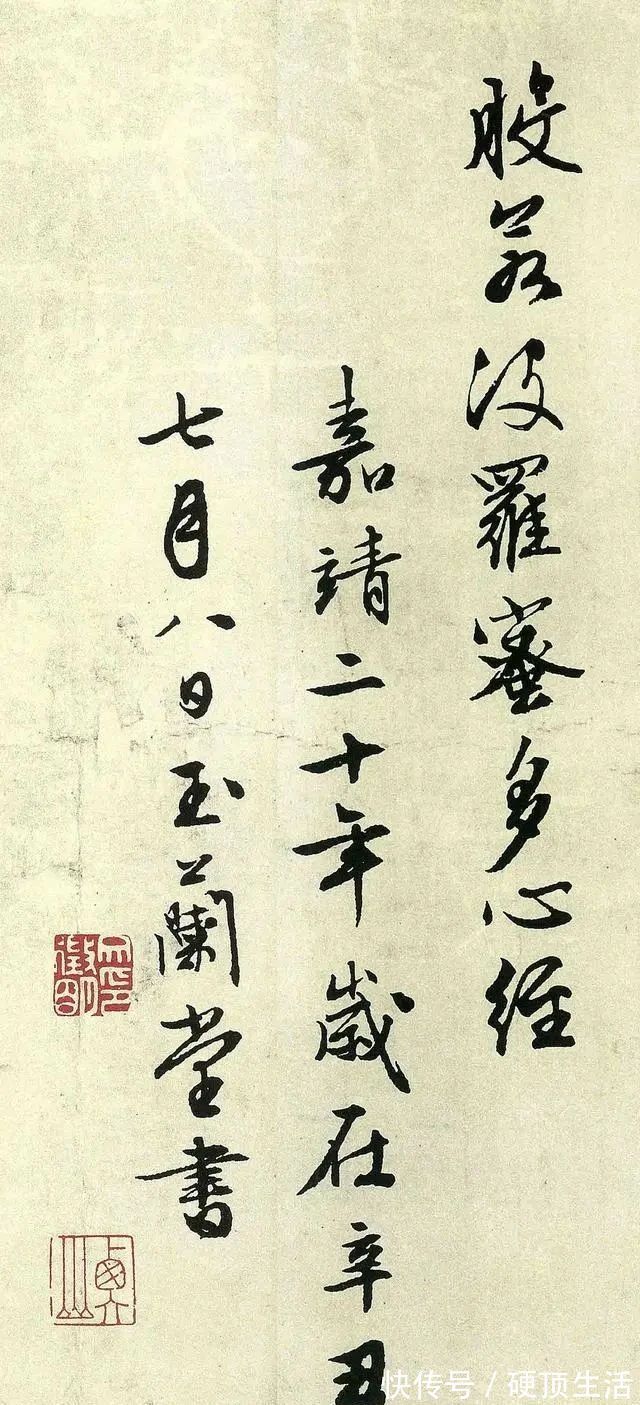 般若波羅蜜多心經
嘉靖二十年歲在辛丑
七月八日玉蘭堂書
快传号／硬顶生活